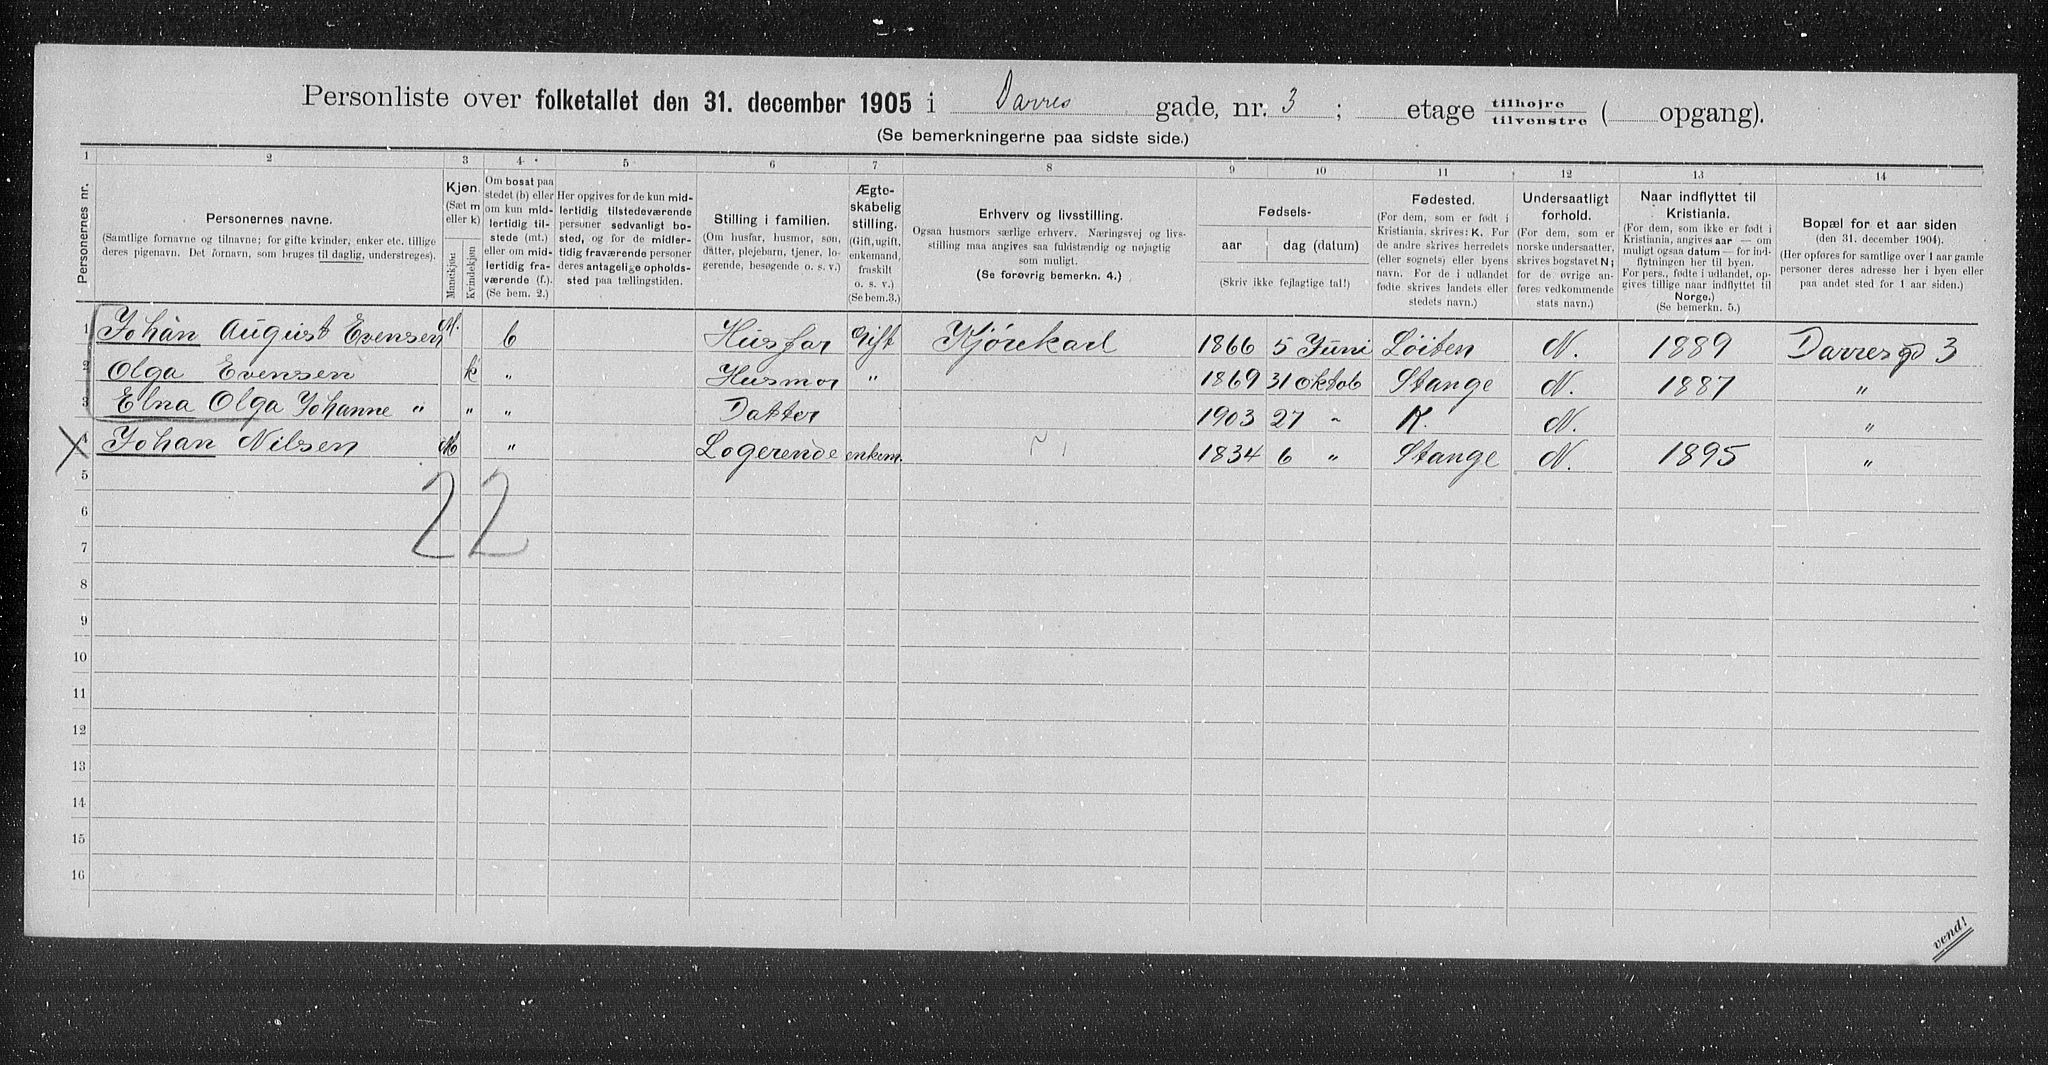 Personliste over folketallet den 31. december 1905 i Darres gade, nr. 3 ; etage tilhøjre tilvenstre ( opgang).
(Se bemerkningerne paa sidste side.)
1 2 3 4 5 6 7 8 9 10 11 12 13 14
Personernes nr.
Personernes navne.
(Samtlige fornavne og tilnavne; for gifte kvinder, enker etc. tillige
deres pigenavn. Det fornavn, som bruges til daglig, understreges).
Kjøn.
(Sæt m
eller k)
Mandkjøn.
Kvindekjøn.
Om bosat paa
stedet (b) eller
om kun mid-
lertidig til-
stede (mt.)
eller om mid-
lertidig fra-
værende (f.).
(Se bem. 2.)
Her opgives for de kun mid-
lertidig tilstedeværende
personer sedvanlig bo-
sted, og for de midler-
tidig fraværende personer
deres antagelige opholds-
sted paa tællingstiden.
Stilling i familien.
(Om husfar, husmor, søn,
datter, plejebarn, tjener, lo-
gerende, besøgende o. s. v.)
Ægte-
skabelig
stilling.
(Gift, ugift,
enkemand,
fraskilt
o. s. v.)
(Se bem.3.)
Erhverv og livsstilling.
Ogsaa husmors særlige erhverv. Næringsvej og livs-
stilling maa angives saa fuldstændig og nøjagtig
som muligt.
(Se forøvrig bemerkn. 4.)
Fødsels-
aar dag (datum)
(Skriv ikke fejlagtige tal!)
Fødested.
(For dem, som er født i
Kristiania, skrives: K. For
de andre skrives herredets
(eller sognets) eller byens
navn. For de i udlandet
fødte skrives landets eller
stedets navn.)
Undersaatligt
forhold.
(For dem, som er
norske undersaatter,
skrives bogstavet N;
for de øvrige an-
føres vedkommende
stats navn.)
Naar indflyttet til
Kristiania.
(For dem, som ikke er født i
Kristiania, angives aar — om
muligt ogsaa datum — for ind-
flytningen her til byen.
For pers., fødte i udlandet, op-
gives tillige naar indflyttet til
Norge.)
(Se bemerkn. 5.)
Bopæl for et aar siden
(den 31. december 1904).
(Her opføres for samtlige over 1 aar gamle
personer deres adresse her i byen eller
paa andet sted for 1 aar siden.)
1 Johan August Evensen M. b Husfar Gift Kjørekarl 1866 5 Juni Løiten N. 1889 Darresgd 3
2 Olga Evensen k " Husmor " 1869 31 Oktob Stange N. 1887 "
3 Elna Olga Johanne " " " Datter 1903 27 " K. N. "
4 Johan Nilsen M " Logerende enkem. 1834 6 " Stange N. 1895 "
5
22
6
7
8
9
10
11
12
13
14
15
16
vend!